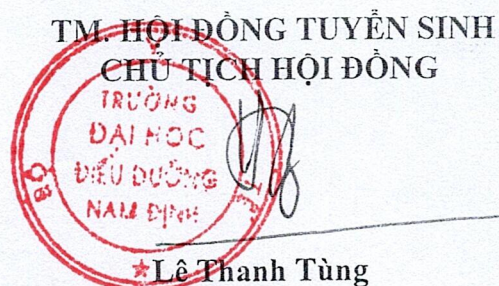 TM. HỘI ĐỒNG TUYỂN SINH
CHỦ TỊCH HỘI ĐỒNG
TRƯỜNG
ĐẠI HỌC
ĐIỀU DƯỠNG
NAM ĐỊNH
Lê Thanh Tùng